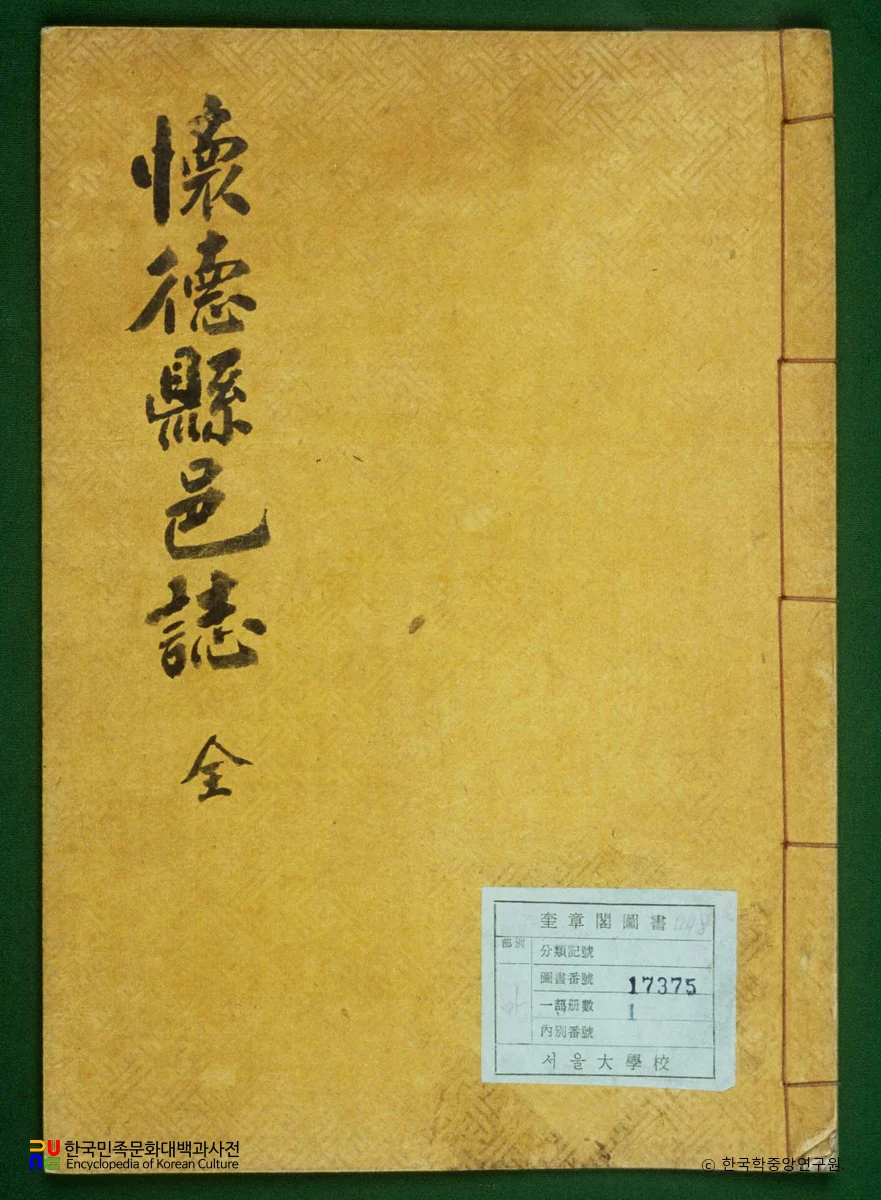 懷德縣邑誌 全
奎章閣圖書
部別
分類記號
圖書番號 17375
一部冊數 1
內別番號
서울大學校
한국민족문화대백과사전
Encyclopedia of Korean Culture
© 한국학중앙연구원